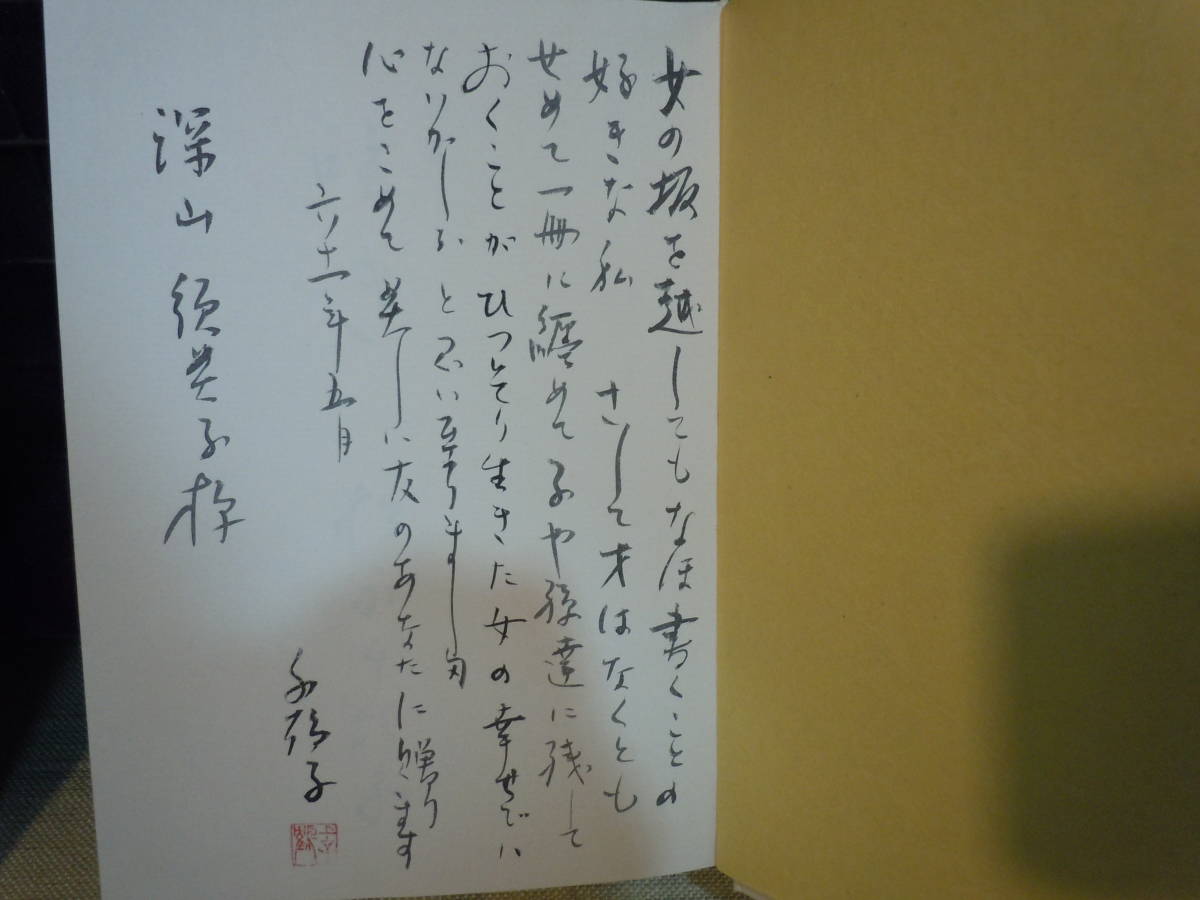 女の坂を越してもなほ書くことの
好きな私 さして才はなくとも
せめて一冊に纏めて子や孫達に残して
おくことがひっそり生きた女の幸せでは
なからしか と思い至りました
心をこめて 美しい友のあなたに贈ります
六十一年五月
深山 須美子様